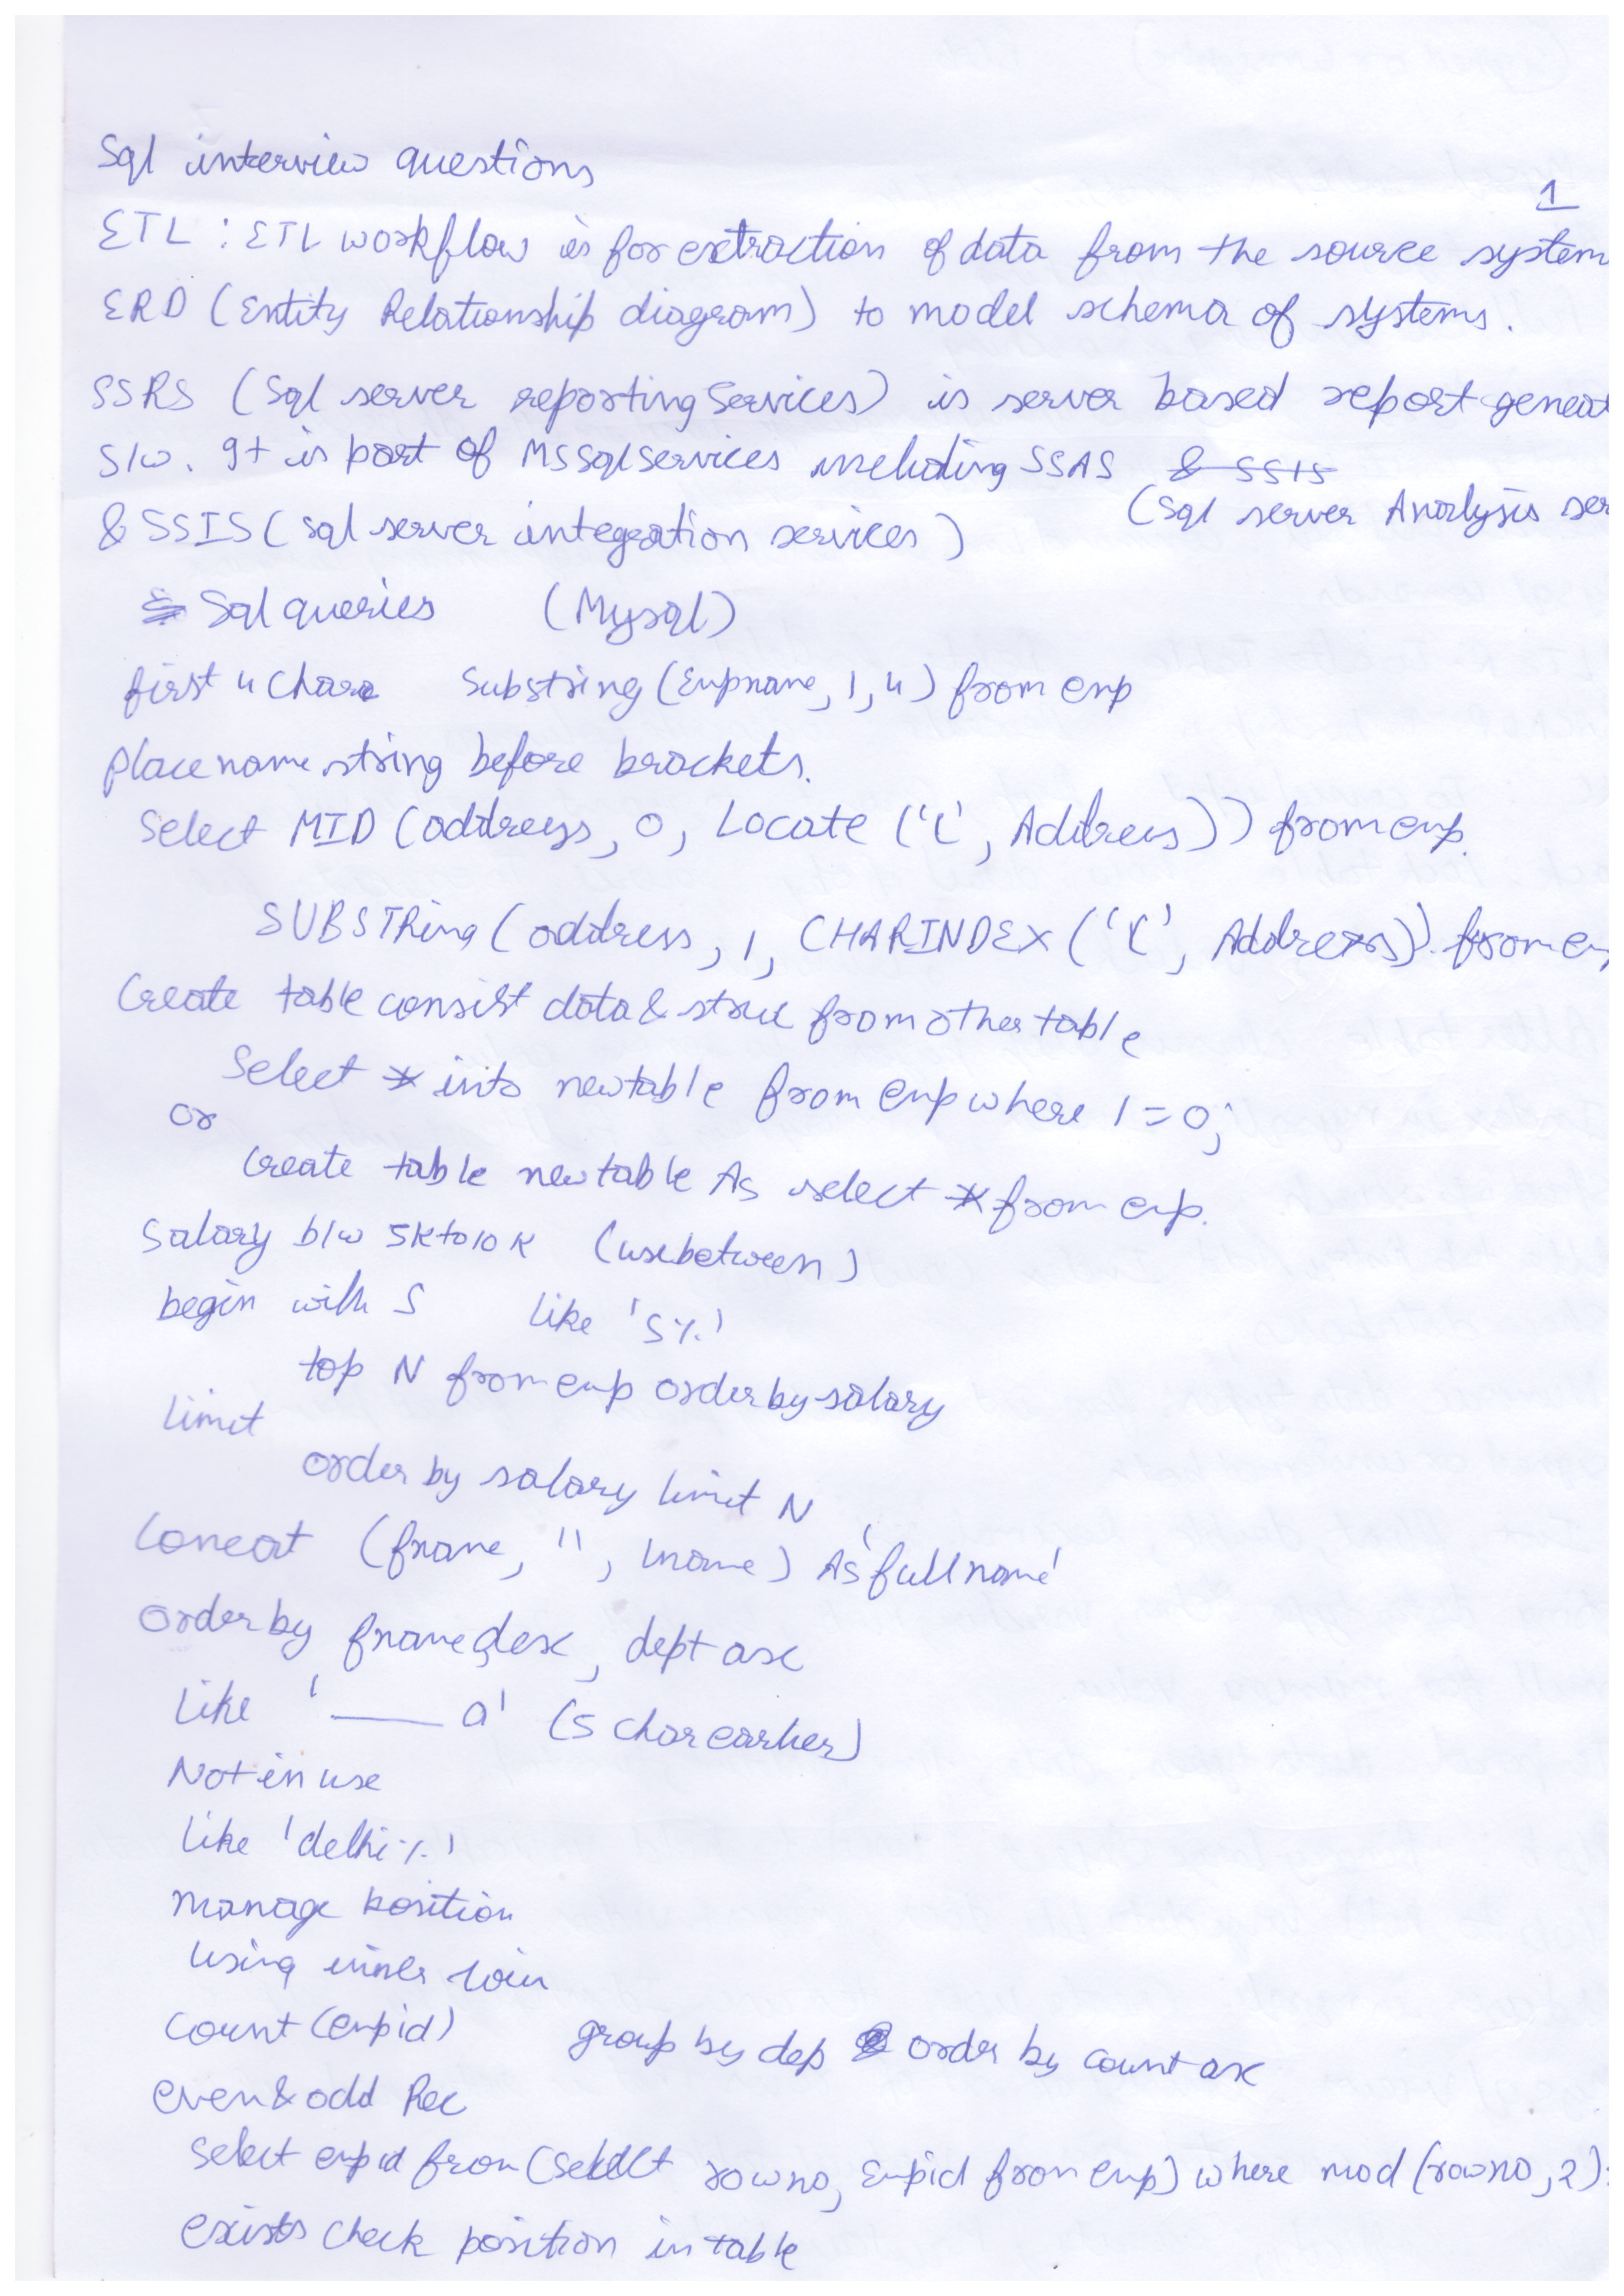 Sql interview questions
1
ETL : ETL workflow is for extraction of data from the source system
ERD (Entity Relationship diagram) to model schema of systems.
SSRS (Sql server reporting Services) is server based report geneat
S/w. It is part of MSSqlservices including SSAS & SSIS
(Sql server Analysis ser
& SSIS (sql server integration services)
Sql queries (Mysql)
first 4 chara Substring (Empname, 1, 4) from emp
place name string before brackets.
Select MID (address, 0, Locate ('(', Address)) from emp.
SUBSTRing (address, 1, CHARINDEX ('(', Address)) from em
Create table consist data & struc from other table
Select * into newtable from emp where 1 = 0;
or
Create table newtable As select * from emp.
Salary b/w 5k to 10 K (use between)
begin with S like 'S%'
top N from emp order by salary
limit
order by salary limit N
Concat (fname, '', lname) As 'fullname'
Order by fname desc, dept asc
Like '____a' (5 char earlier)
Not in use
like 'delhi%'
manage position
using inner join
count (empid) group by dep order by count asc
even & odd Rec
Select empid from (select rowno, Empid from emp) where mod (rowno, 2)=
exists check position in table